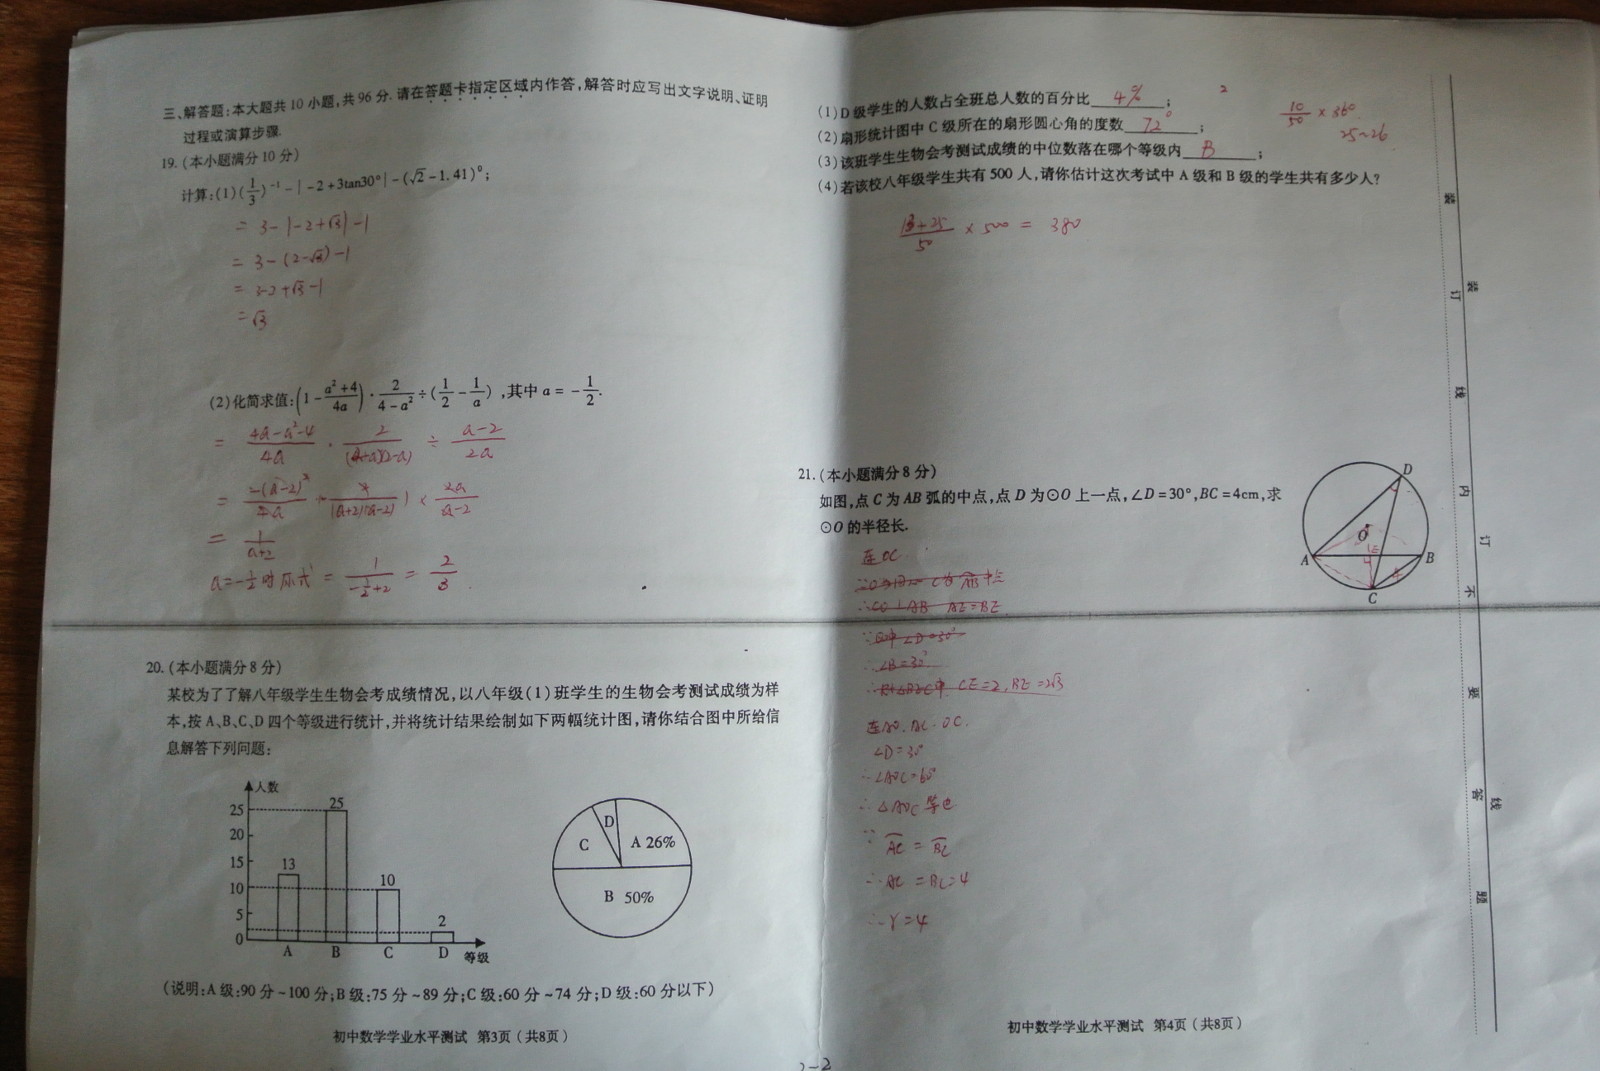 三、解答题:本大题共10小题,共96分.请在答题卡指定区域内作答,解答时应写出文字说明、证明
过程或演算步骤.
19.(本小题满分10分)
计算:(1)(1/3)⁻¹-|-2+3tan30°|-(√2-1.41)⁰;
= 3-|-2+√3|-1
= 3-(2-√3)-1
= 3-2+√3-1
= √3
(2)化简求值:(1-(a²+4)/4a)·2/(4-a²)÷(1/2-1/a),其中a=-1/2.
= (4a-a²-4)/4a · 2/((2+a)(2-a)) ÷ (a-2)/2a
= 1/(a+2)
a=-1/2时 原式 = 1/(-1/2+2) = 2/3
20.(本小题满分8分)
某校为了了解八年级学生生物会考成绩情况,以八年级(1)班学生的生物会考测试成绩为样
本,按A、B、C、D四个等级进行统计,并将统计结果绘制如下两幅统计图,请你结合图中所给信
息解答下列问题:
人数
25
20
15
10
5
0
13
25
10
2
A B C D 等级
D
C
A 26%
B 50%
(说明:A级:90分~100分;B级:75分~89分;C级:60分~74分;D级:60分以下)
初中数学学业水平测试 第3页(共8页)
2-2
(1)D级学生的人数占全班总人数的百分比 4% ;
2
(2)扇形统计图中C级所在的扇形圆心角的度数 72° ;
10/50 × 360
25~26
(3)该班学生生物会考测试成绩的中位数落在哪个等级内 B ;
(4)若该校八年级学生共有500人,请你估计这次考试中A级和B级的学生共有多少人?
(13+25)/50 × 500 = 380
21.(本小题满分8分)
如图,点C为AB弧的中点,点D为⊙O上一点,∠D=30°,BC=4cm,求
⊙O的半径长.
D
O
A
B
C
E
4
连OC
C为AB中点
∴CO⊥AB AE=BE
∠D=30°
∴∠B=30°
CE=2,BE=2√3
连AO.AC.OC.
∠D=30°
∴∠AOC=60°
∴△AOC等边
∵AC=BC
∴AC=BC=4
∴r=4
初中数学学业水平测试 第4页(共8页)
装订线内不要答题
装订线